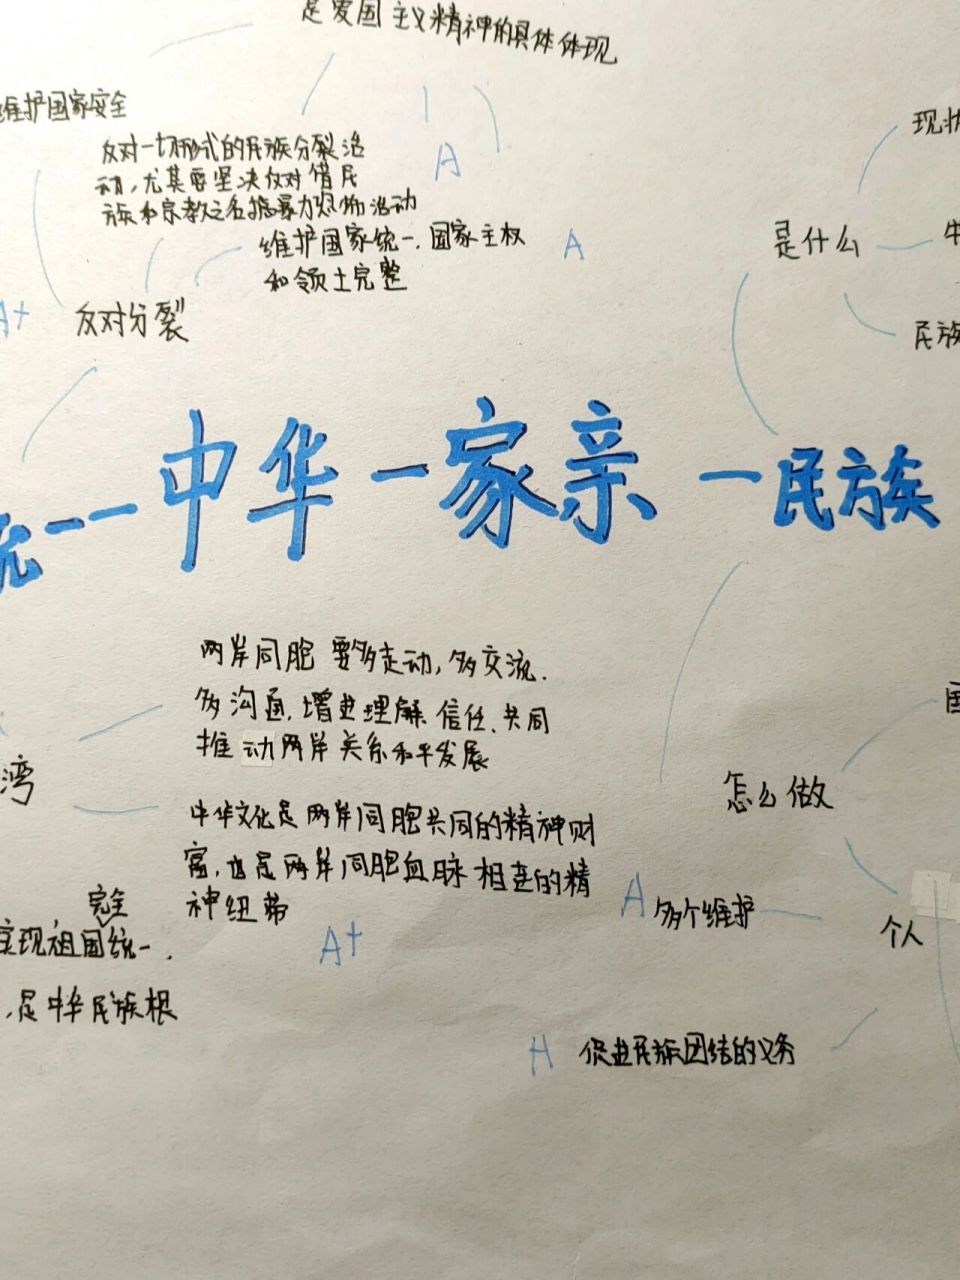 是爱国主义精神的具体体现
维护国家安全
反对一切形式的民族分裂活
动,尤其要坚决反对借民
族和宗教之名搞暴力恐怖活动
A
维护国家统一、国家主权
和领土完整
A
A+
反对分裂
现状
是什么
民族
统一一中华一家亲一民族
两岸同胞要多走动,多交流.
多沟通,增进理解 信任、共同
推动两岸关系和平发展
湾
中华文化是两岸同胞共同的精神财
富,也是两岸同胞血脉相连的精
神纽带
A+
怎么做
国
A 多个维护
个人
完全
实现祖国统一,
,是中华民族根
H 促进民族团结的义务